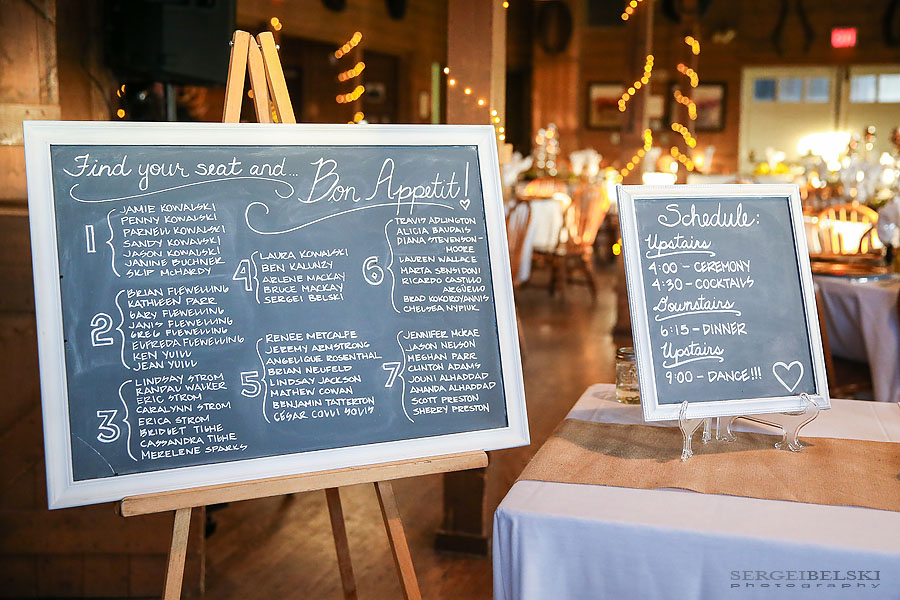 Find your seat and... Bon Appetit!
1
JAMIE KOWALSKI
PENNY KOWALSKI
PARNELL KOWALSKI
SANDY KOWALSKI
JASON KOWALSKI
JANINE BUCHNER
SKIP McHARDY
2
BRIAN FLEWELLING
KATHLEEN PARR
GARY FLEWELLING
JANIS FLEWELLING
GREG FLEWELLING
ELFREDA FLEWELLING
KEN YUILL
JEAN YUILL
3
LINDSAY STROM
RANDAL WALKER
ERIC STROM
CARALYNN STROM
ERICA STROM
BRIDGET TIGHE
CASSANDRA TIGHE
MERELENE SPARKS
4
LAURA KOWALSKI
BEN KALUNZY
ARLENE MACKAY
BRUCE MACKAY
SERGEI BELSKI
5
RENEE METCALFE
JEREMY ARMSTRONG
ANGELIQUE ROSENTHAL
BRIAN NEUFELD
LINDSAY JACKSON
MATHEW COWAN
BENJAMIN TATTERTON
CESAR
6
TRAVIS ADLINGTON
ALICIA BAUDAIS
DIANA STEVENSON-
MOORE
LAUREN WALLACE
MARTA SENSIDONI
RICARDO CASTILLO
ARGÜELLO
BRAD KOKOROYANNIS
CHELSEA NYPIUK
7
JENNIFER McRAE
JASON NELSON
MEGHAN PARR
CLINTON ADAMS
JOUNI ALHADDAD
AMANDA ALHADDAD
SCOTT PRESTON
SHERRY PRESTON
Schedule:
Upstairs
4:00 - CEREMONY
4:30 - COCKTAILS
Downstairs
6:15 - DINNER
Upstairs
9:00 - DANCE!!!
SERGEIBELSKI
photography